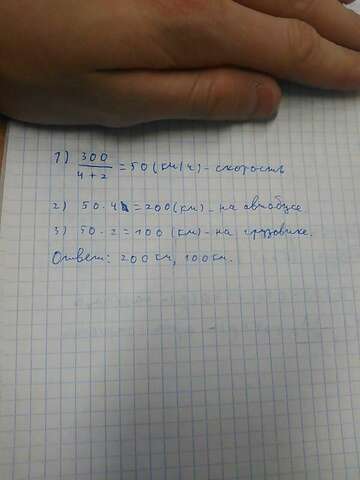 1) 300/4+2 = 50 (км/ч) - скорость
2) 50 · 4 = 200 (км) - на автобусе
3) 50 · 2 = 100 (км) - на грузовике.
Ответ: 200 км, 100 км.